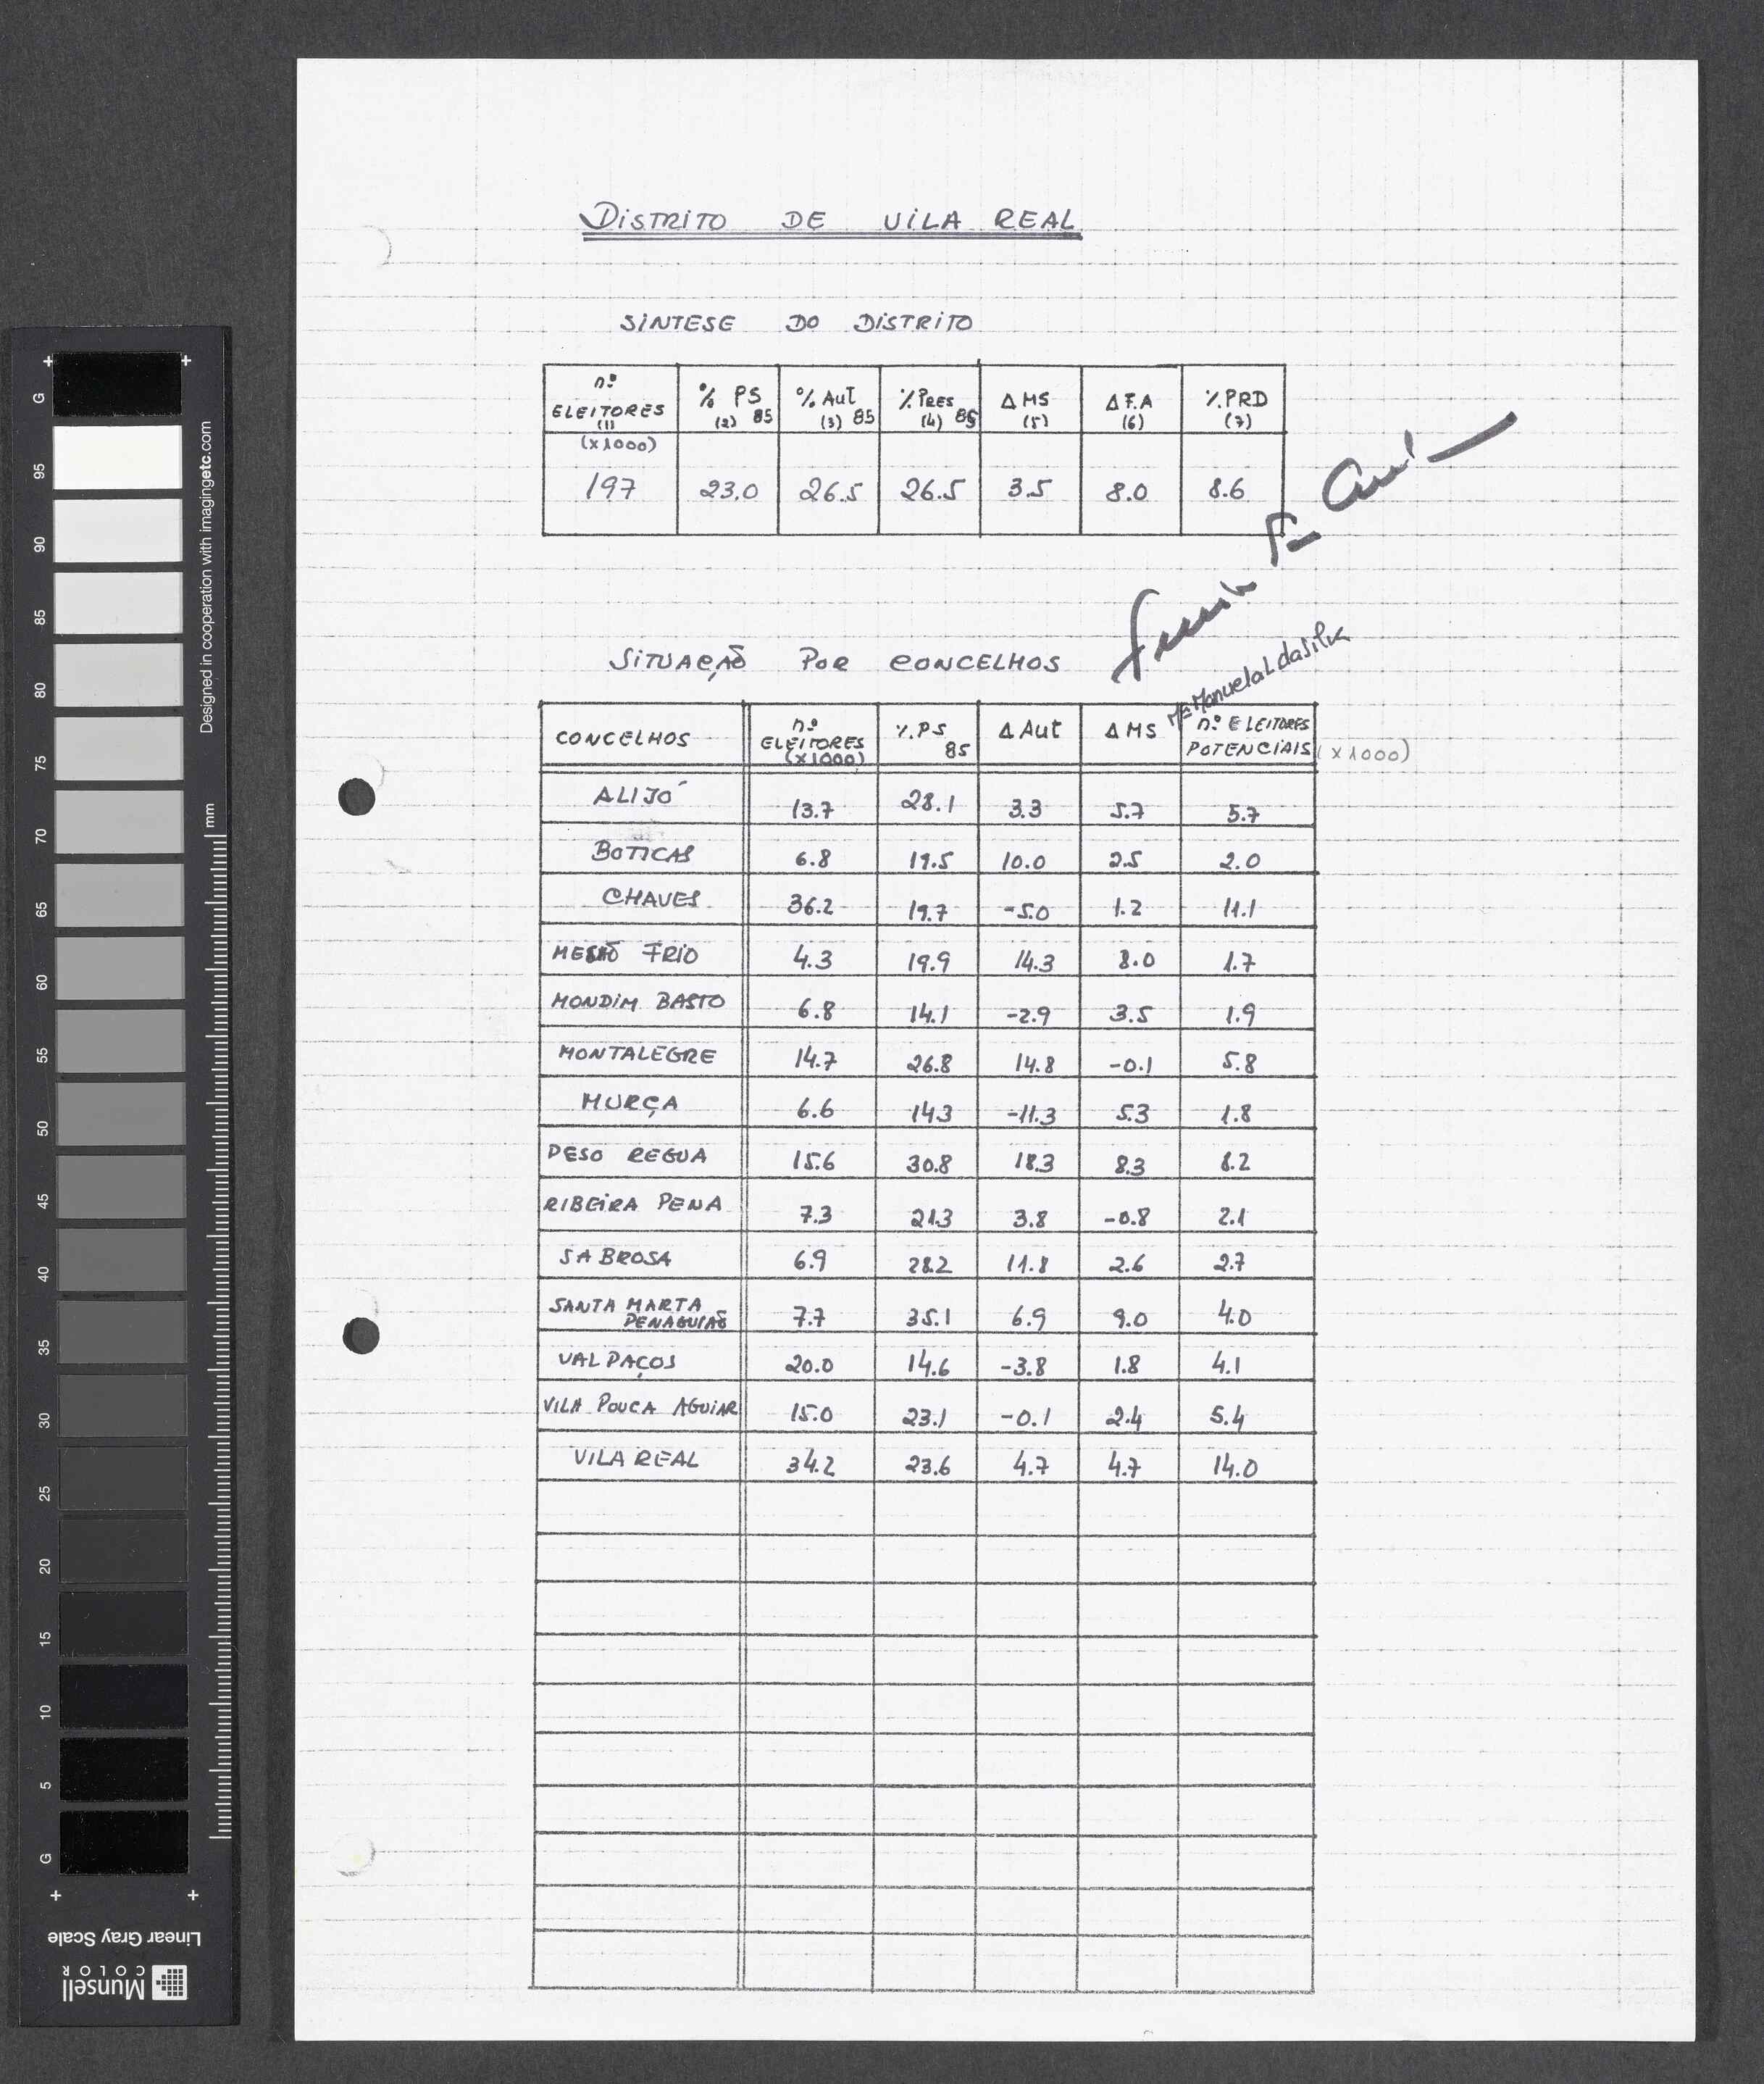 DISTRITO DE VILA REAL
SINTESE DO DISTRITO
nº ELEITORES (1) % PS (2) 85 % Aut (3) 85 % PRES (4) 85 Δ MS (5) Δ F.A (6) % PRD (7)
(x1000)
197 23.0 26.5 26.5 3.5 8.0 8.6
Mª Manuela L da Silva
SITUAÇÃO POR CONCELHOS
CONCELHOS nº ELEITORES (x1000) % PS 85 Δ Aut Δ MS nº ELEITORES POTENCIAIS (x1000)
ALIJÓ 13.7 28.1 3.3 5.7 5.7
BOTICAS 6.8 19.5 10.0 2.5 2.0
CHAVES 36.2 19.7 -5.0 1.2 11.1
MESÃO FRIO 4.3 19.9 14.3 8.0 1.7
MONDIM BASTO 6.8 14.1 -2.9 3.5 1.9
MONTALEGRE 14.7 26.8 14.8 -0.1 5.8
MURÇA 6.6 14.3 -11.3 5.3 1.8
PESO REGUA 15.6 30.8 18.3 8.3 8.2
RIBEIRA PENA 7.3 21.3 3.8 -0.8 2.1
SABROSA 6.9 28.2 11.8 2.6 2.7
SANTA MARTA PENAGUIÃO 7.7 35.1 6.9 9.0 4.0
VALPAÇOS 20.0 14.6 -3.8 1.8 4.1
VILA POUCA AGUIAR 15.0 23.1 -0.1 2.4 5.4
VILA REAL 34.2 23.6 4.7 4.7 14.0
Designed in cooperation with imagingetc.com
mm
G 95 90 85 80 75 70 65 60 55 50 45 40 35 30 25 20 15 10 5 G
Linear Gray Scale
Munsell
COLOR